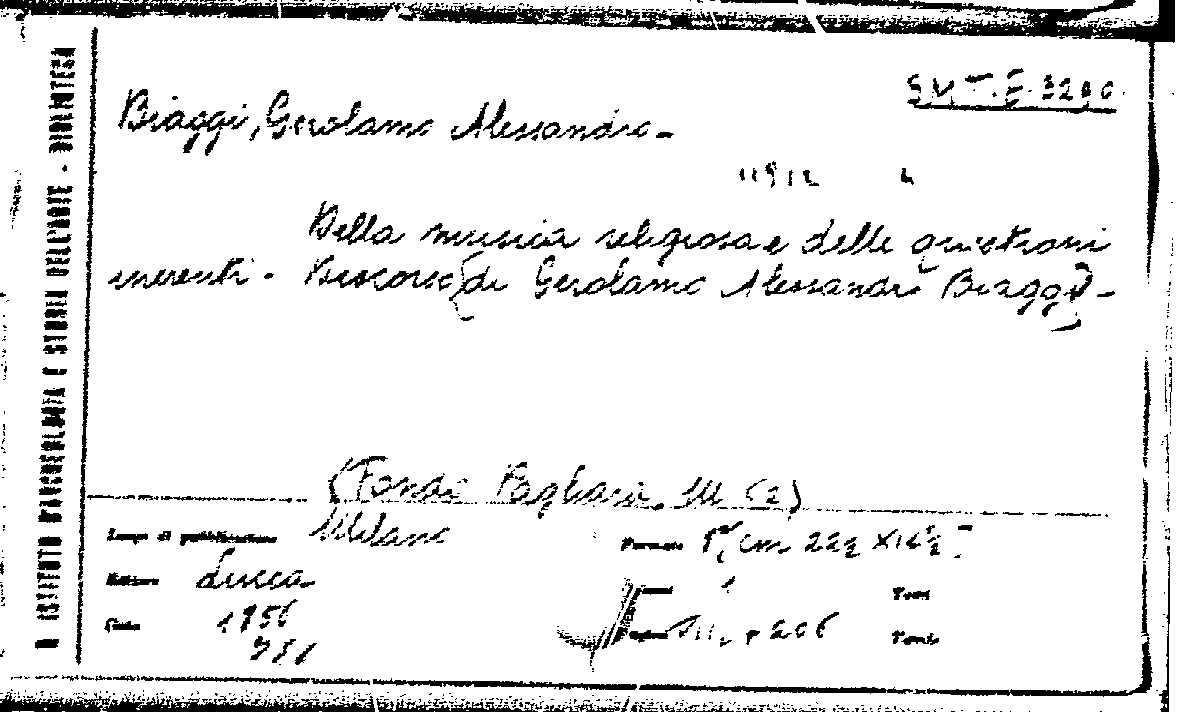 R. ISTITUTO D'ARCHEOLOGIA E STORIA DELL'ARTE - BIBLIOTECA
S.M.T.E.
Biaggi, Gerolamo Alessandro -
Della musica religiosa e delle questioni
inerenti - Discorso (di Gerolamo Alessandro Biaggi) -
(Fondo Pagliara, M (2)
Luogo di pubblicazione Milano Formato 8°, cm 22½ X
Editore Lucca Tomi
Data 1856 Pagine + 206